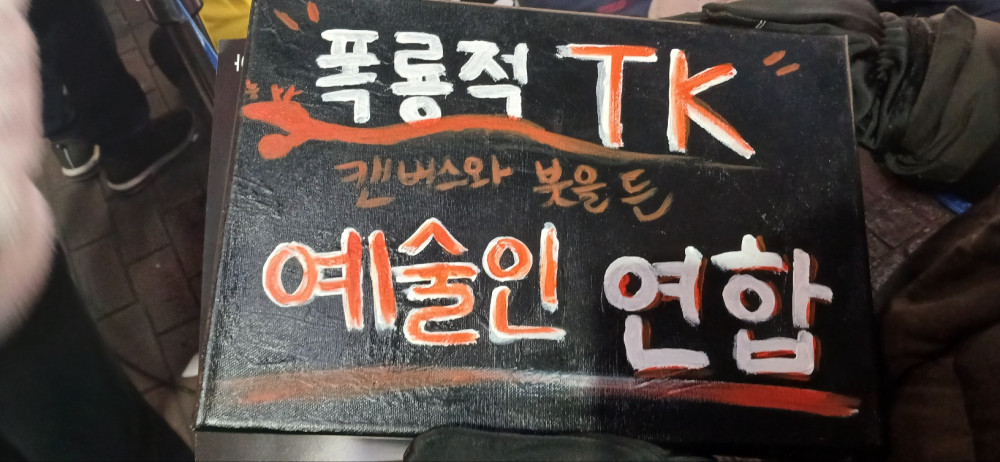 "폭룡적 TK"
캔버스와 붓을 든
예술인 연합